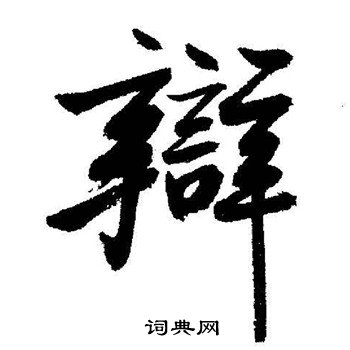 辯
词典网